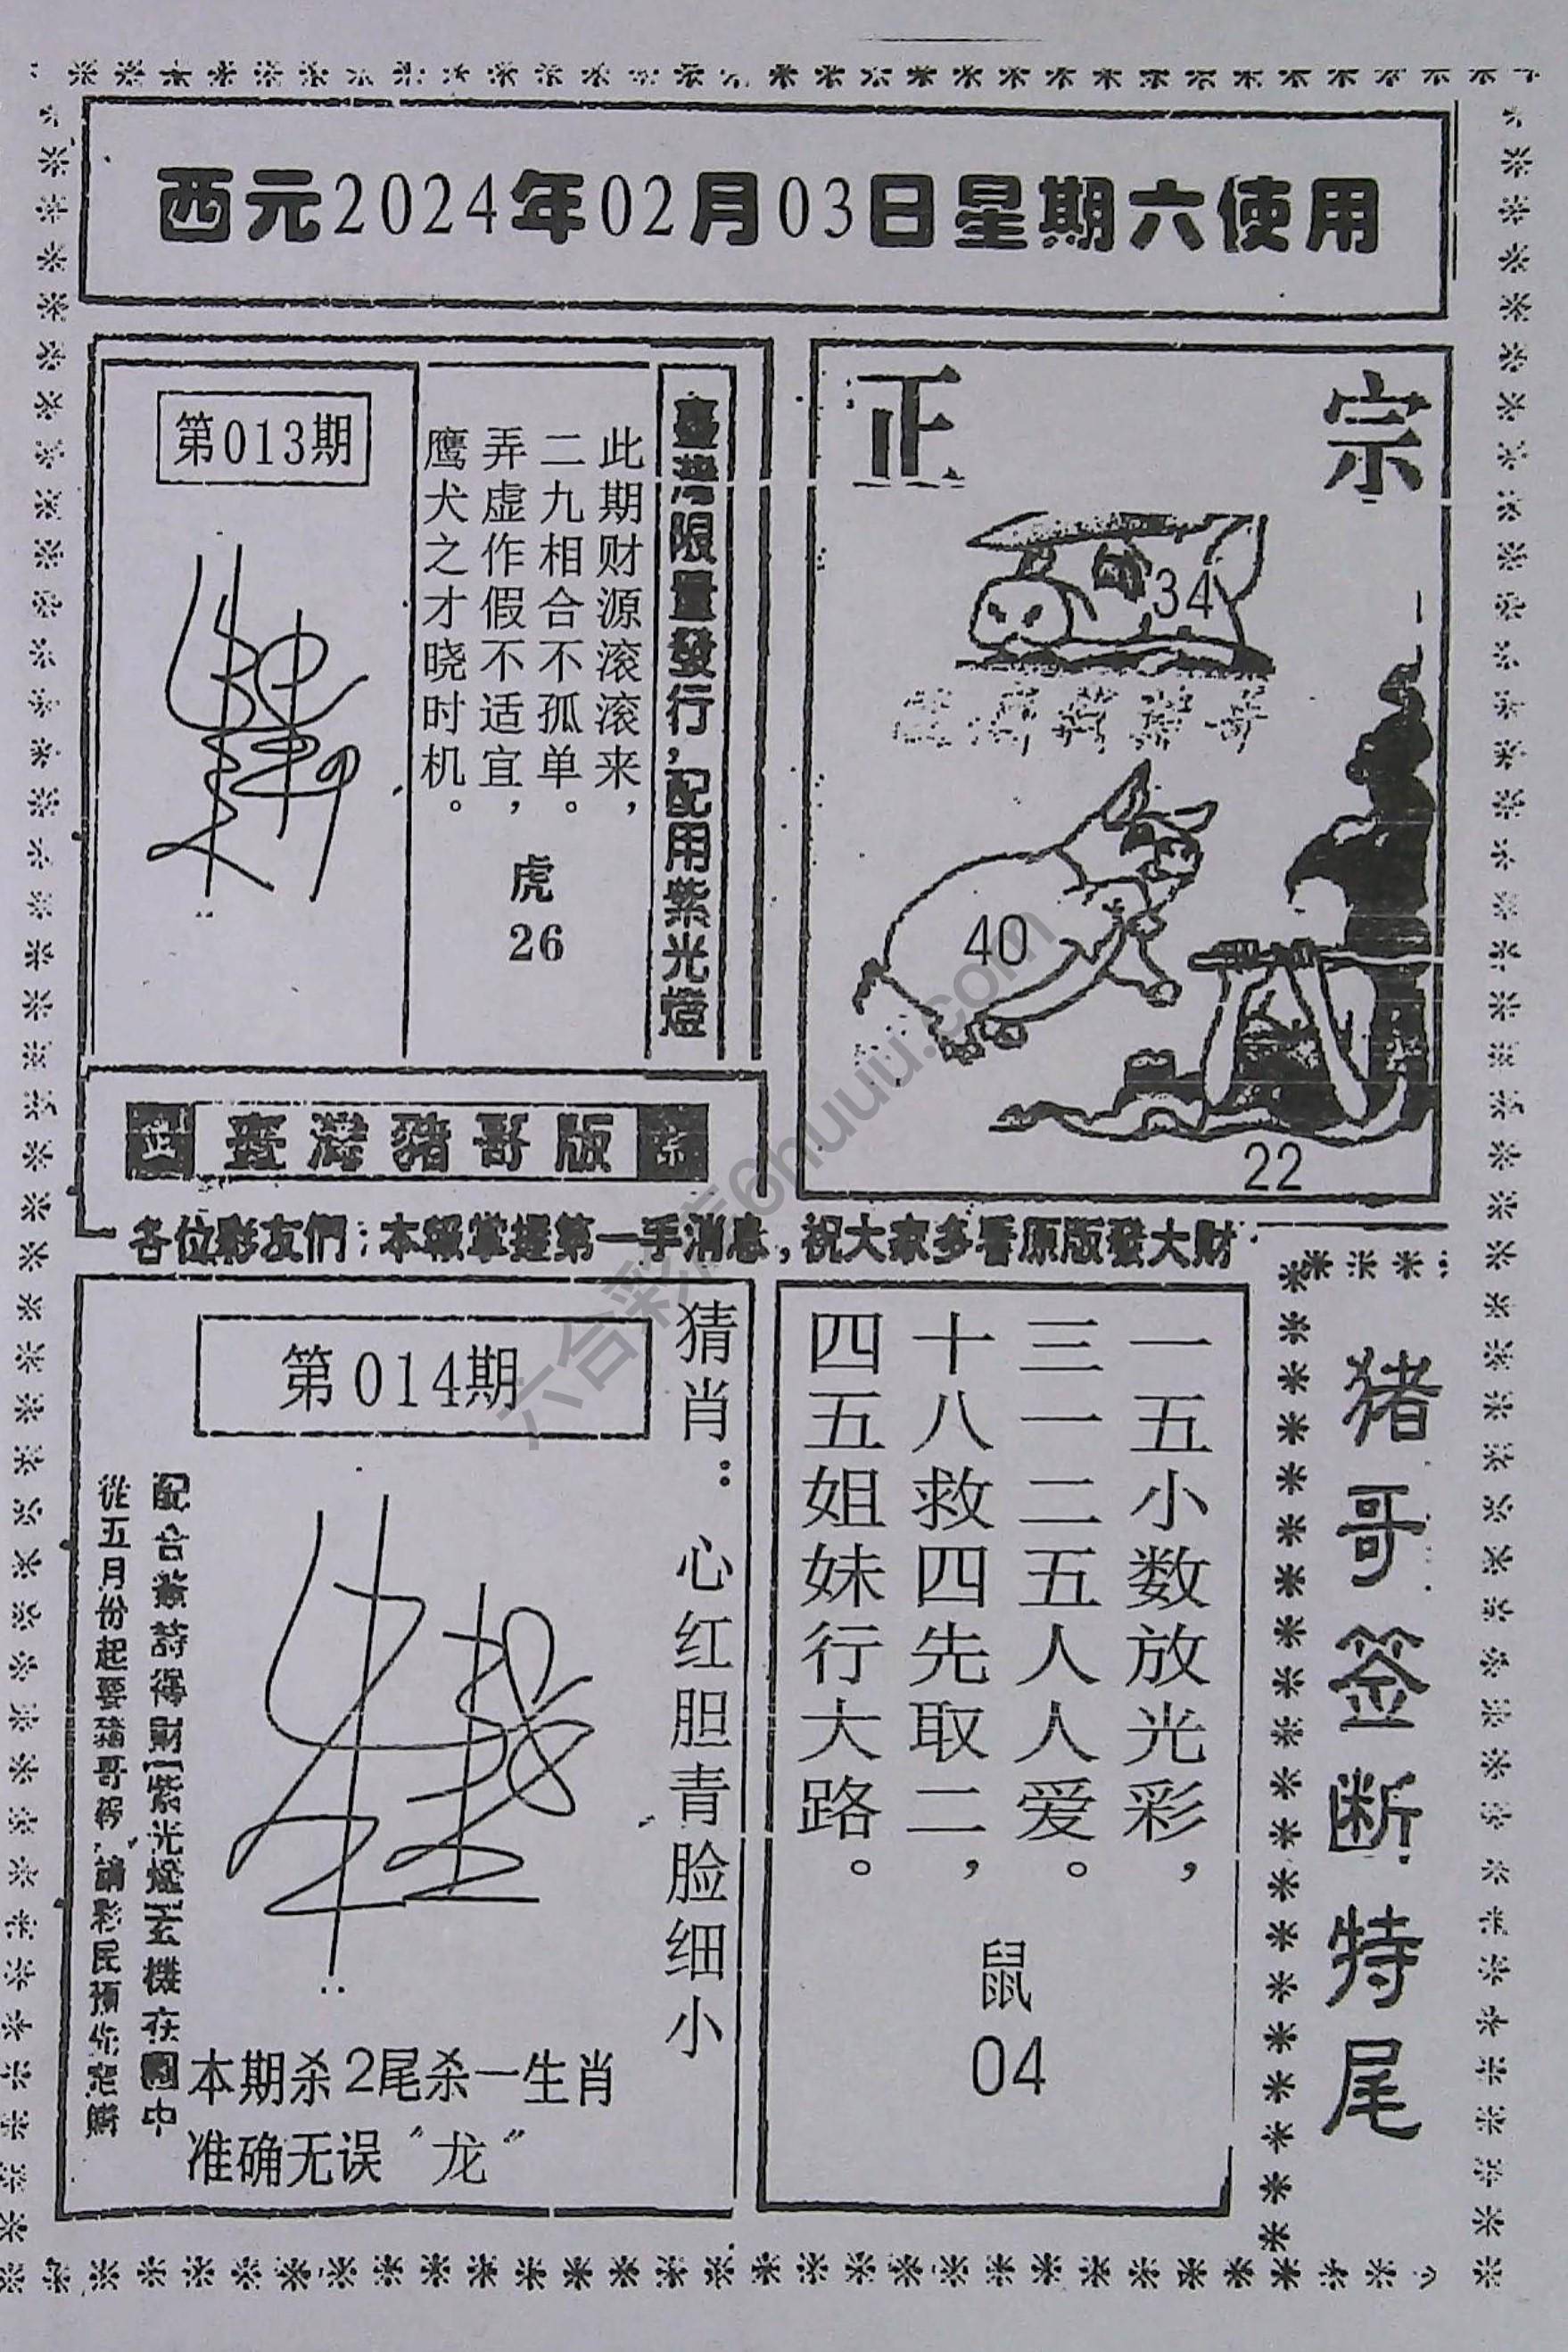 西元2024年02月03日星期六使用
第013期
臺灣限量發行,配用紫光燈
此期财源滚滚来，
二九相合不孤单。
弄虚作假不适宜，
鹰犬之才晓时机。
虎
26
正 宗
34
40
22
正 臺灣豬哥版 宗
各位彩友們:本報掌握第一手消息,祝大家多看原版發大财
第014期
猜肖：心红胆青脸细小
配合簽詩得財【紫光燈】玄機在圖中
從五月份起要豬哥報,請彩民預你定購
本期杀2尾杀一生肖
准确无误“龙”
一五小数放光彩，
三一二五人人爱。
十八救四先取二，
四五姐妹行大路。
鼠
04
猪哥签断特尾
六合彩库6huuu.com